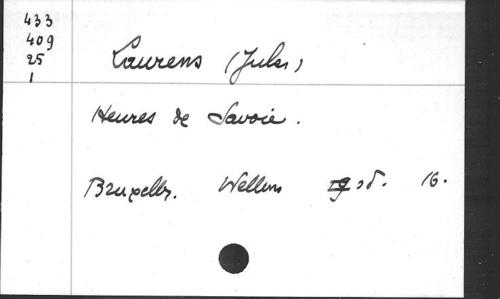 433
409
25
1
Laurens (Jules)
Heures de Savoie.
Bruxelles. Wellens sd. 16.